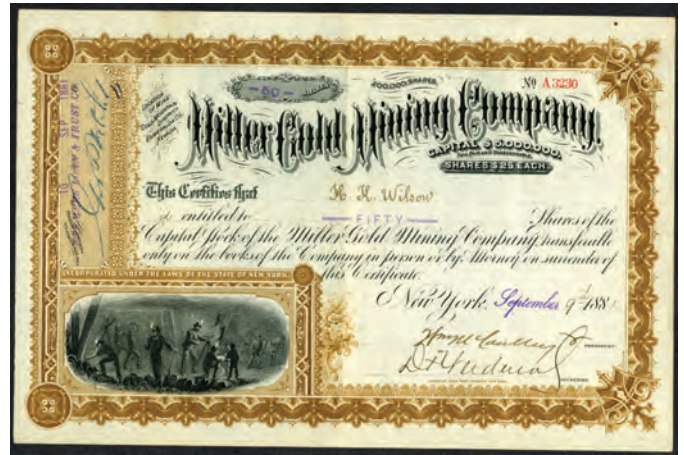 -50- SHARES
200,000 SHARES
No A 3230
Miller Gold Mining Company.
CAPITAL $5,000,000,
SHARES $25 EACH.
This Certifies that H. H. Wilson
is entitled to FIFTY Shares of the
Capital Stock of the Miller Gold Mining Company transferable
only on the books of the Company in person or by Attorney on surrender of
this Certificate.
INCORPORATED UNDER THE LAWS OF THE STATE OF NEW YORK.
New York, September 9 188
PRESIDENT
SEP 1881
& TRUST CO.